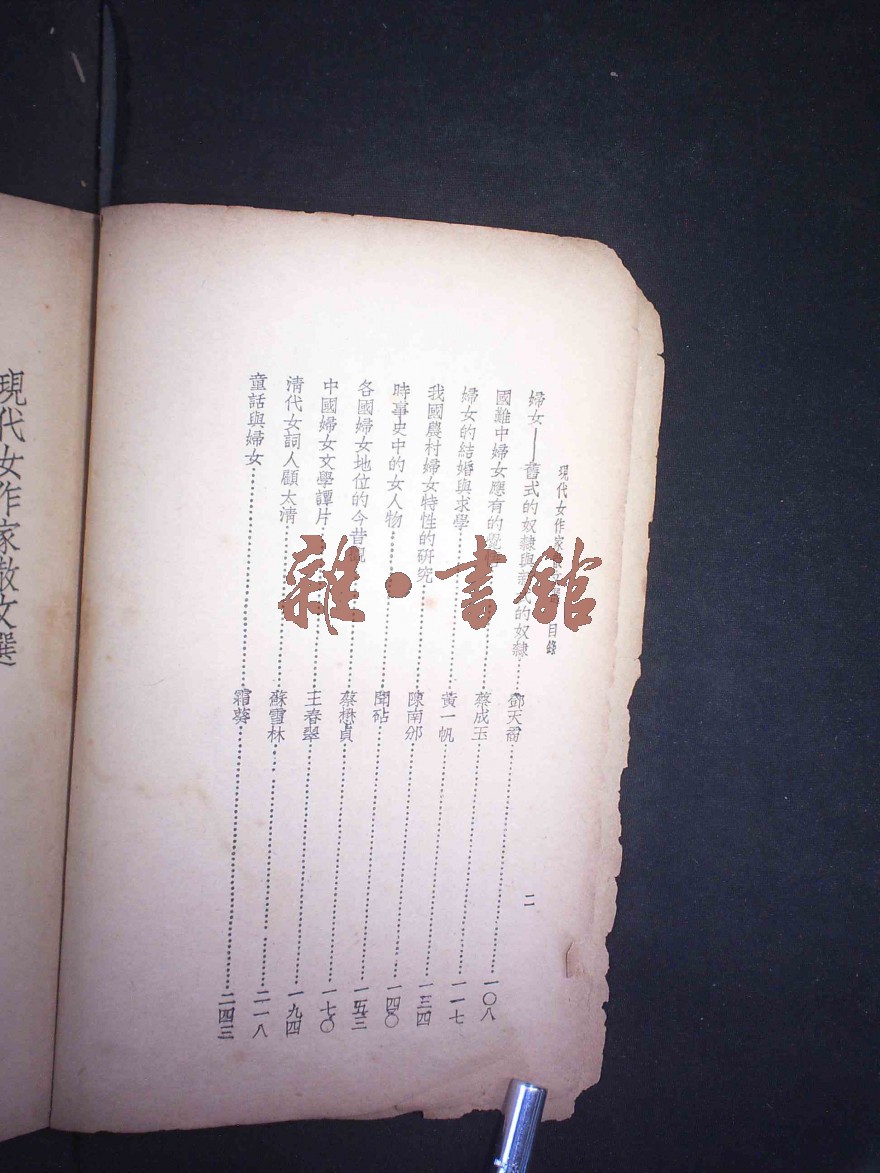 現代女作家 目錄
婦女——舊式的奴隸與新式的奴隸……鄧天矞……一〇八
國難中婦女應有的……蔡成玉……一一七
婦女的結婚與求學……黃一帆……一三四
我國農村婦女特性的研究……陳南邠……一四〇
時事史中的女人物……聞砧……一五三
各國婦女地位的今昔觀……蔡懋貞……一七〇
中國婦女文學譚片……王春翠……一九四
清代女詞人顧太清……蘇雪林……二一八
童話與婦女……霜葵……二四三
二
現代女作家散文選
雜·書館